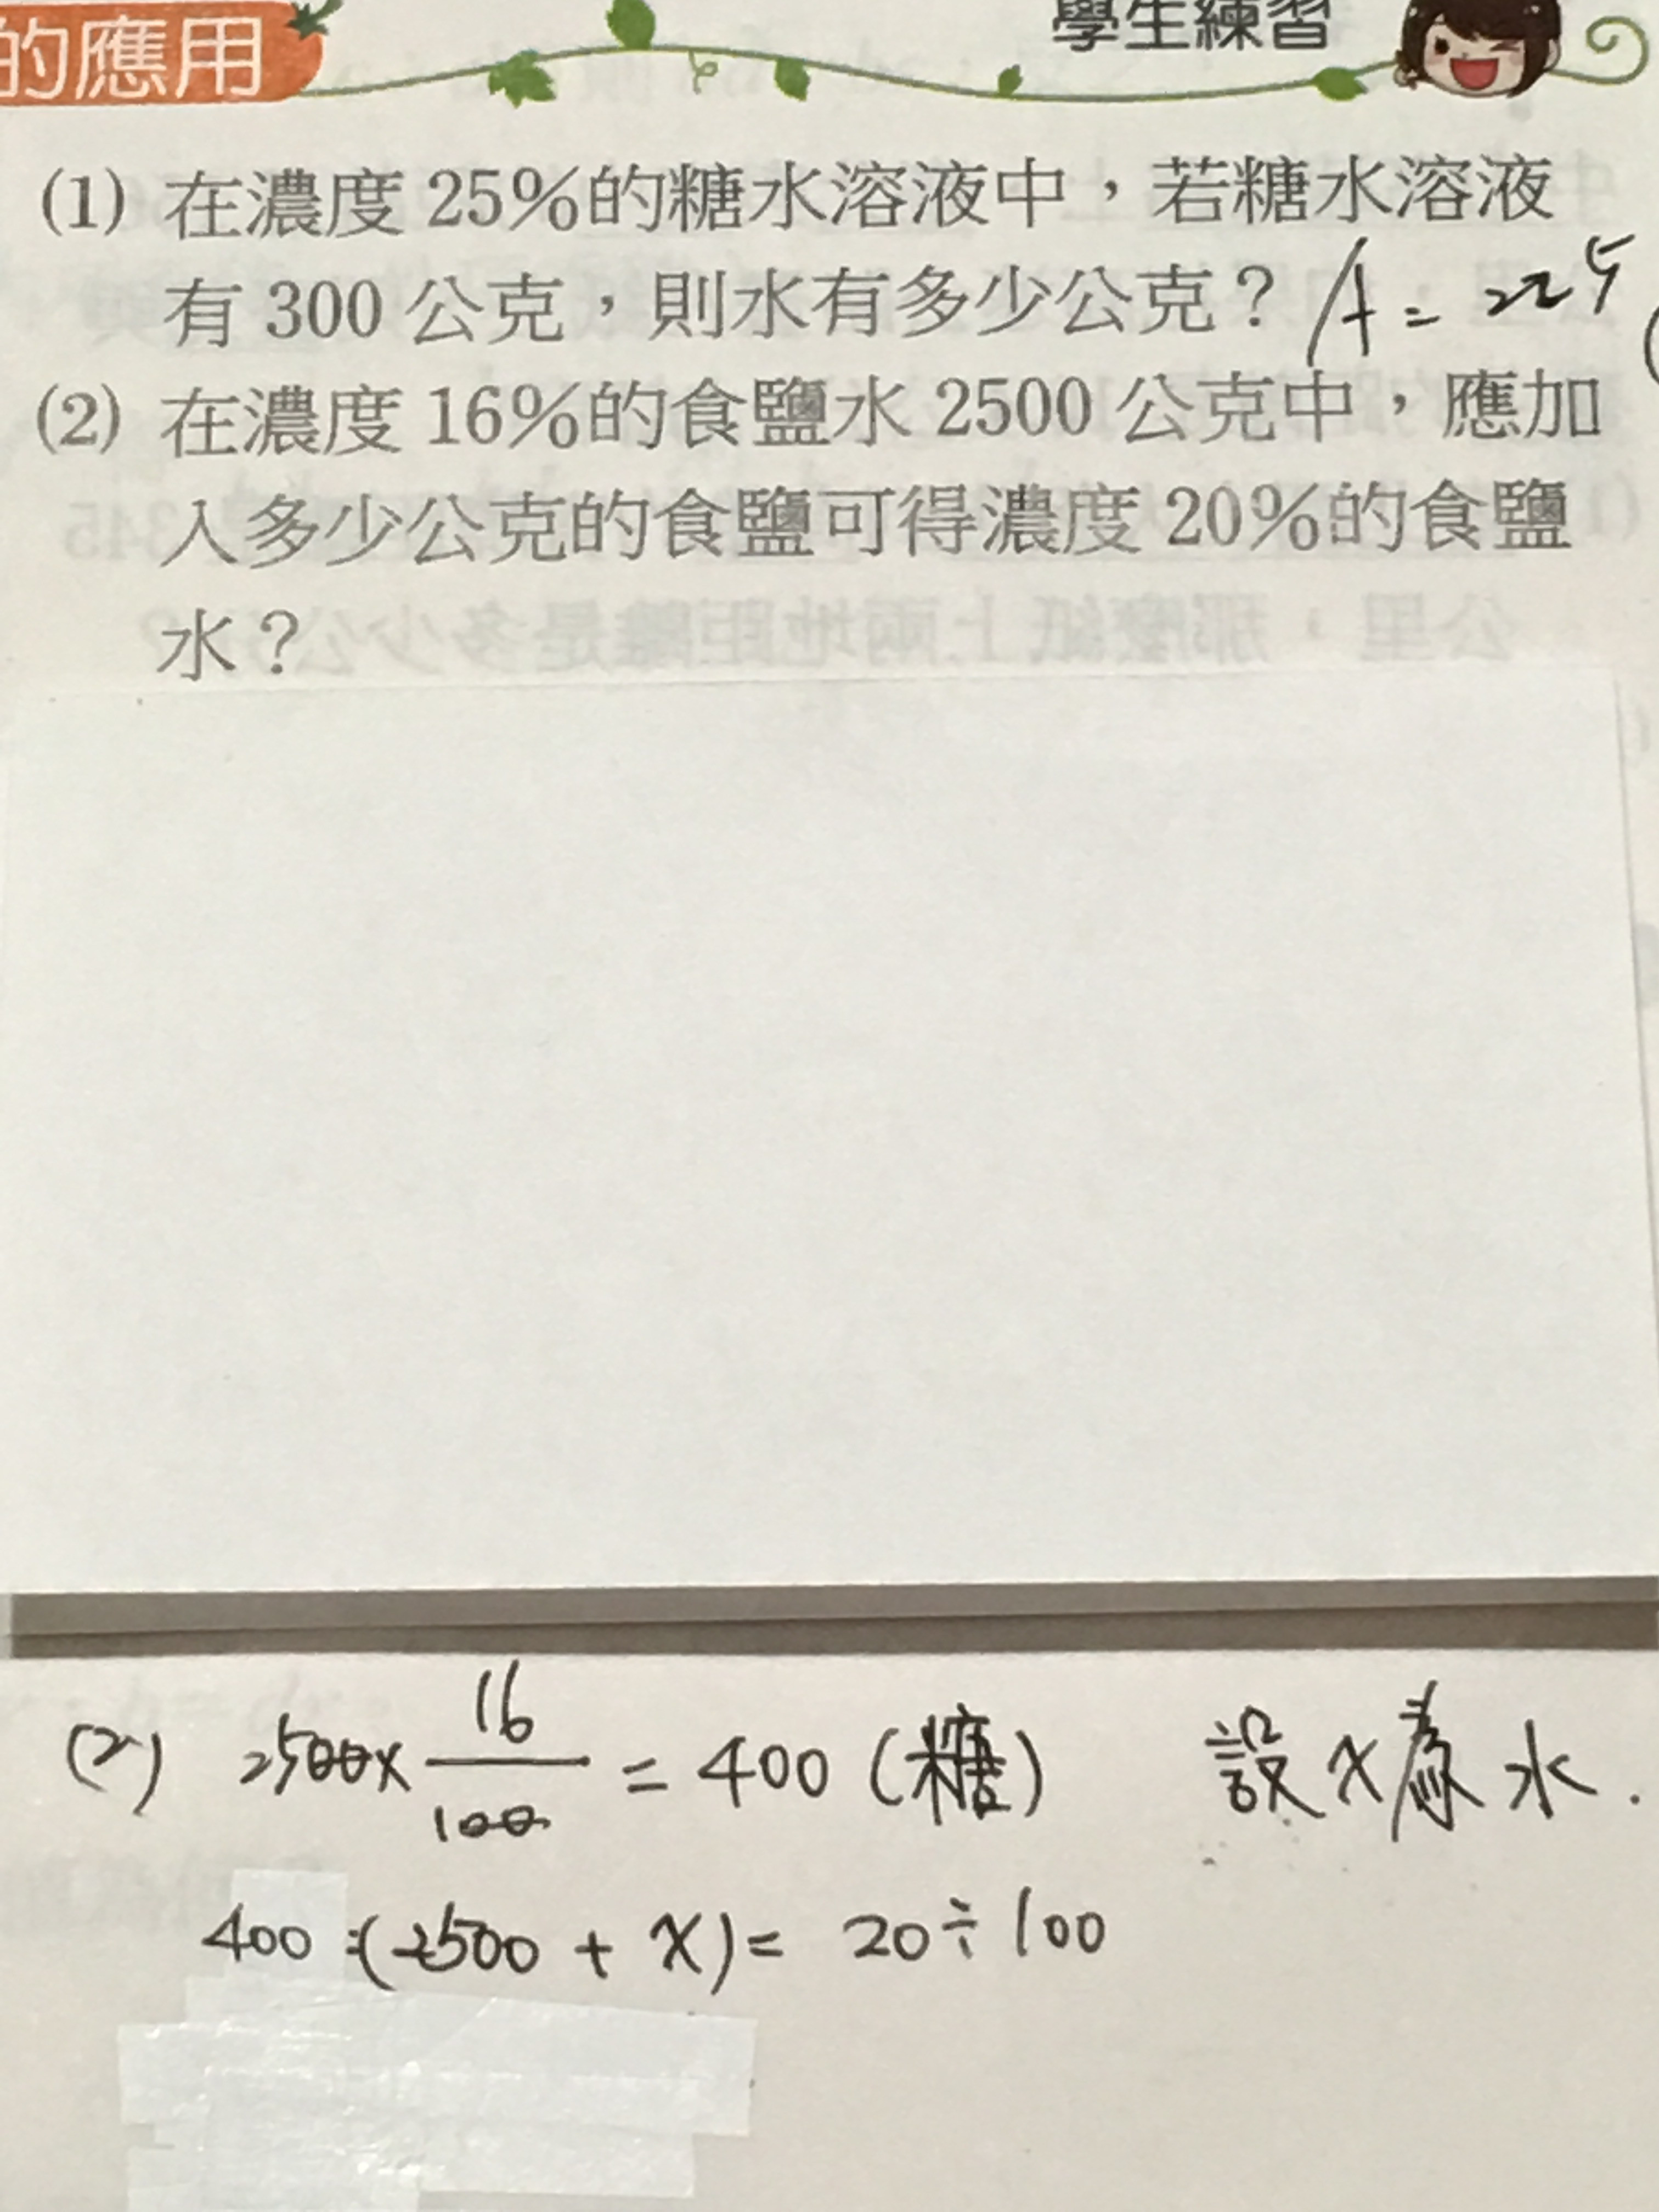 的應用
學生練習
(1) 在濃度 25%的糖水溶液中，若糖水溶液
有 300 公克，則水有多少公克？ A = 225
(2) 在濃度 16%的食鹽水 2500 公克中，應加
入多少公克的食鹽可得濃度 20%的食鹽
水？
(2) 2500 × 16/100 = 400 (糖) 設 x 為水.
400 :(2500 + x) = 20 ÷ 100